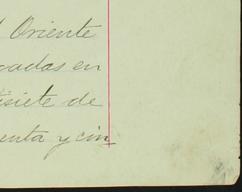 l Oriente
cadas en
tisiete de
enta y cin